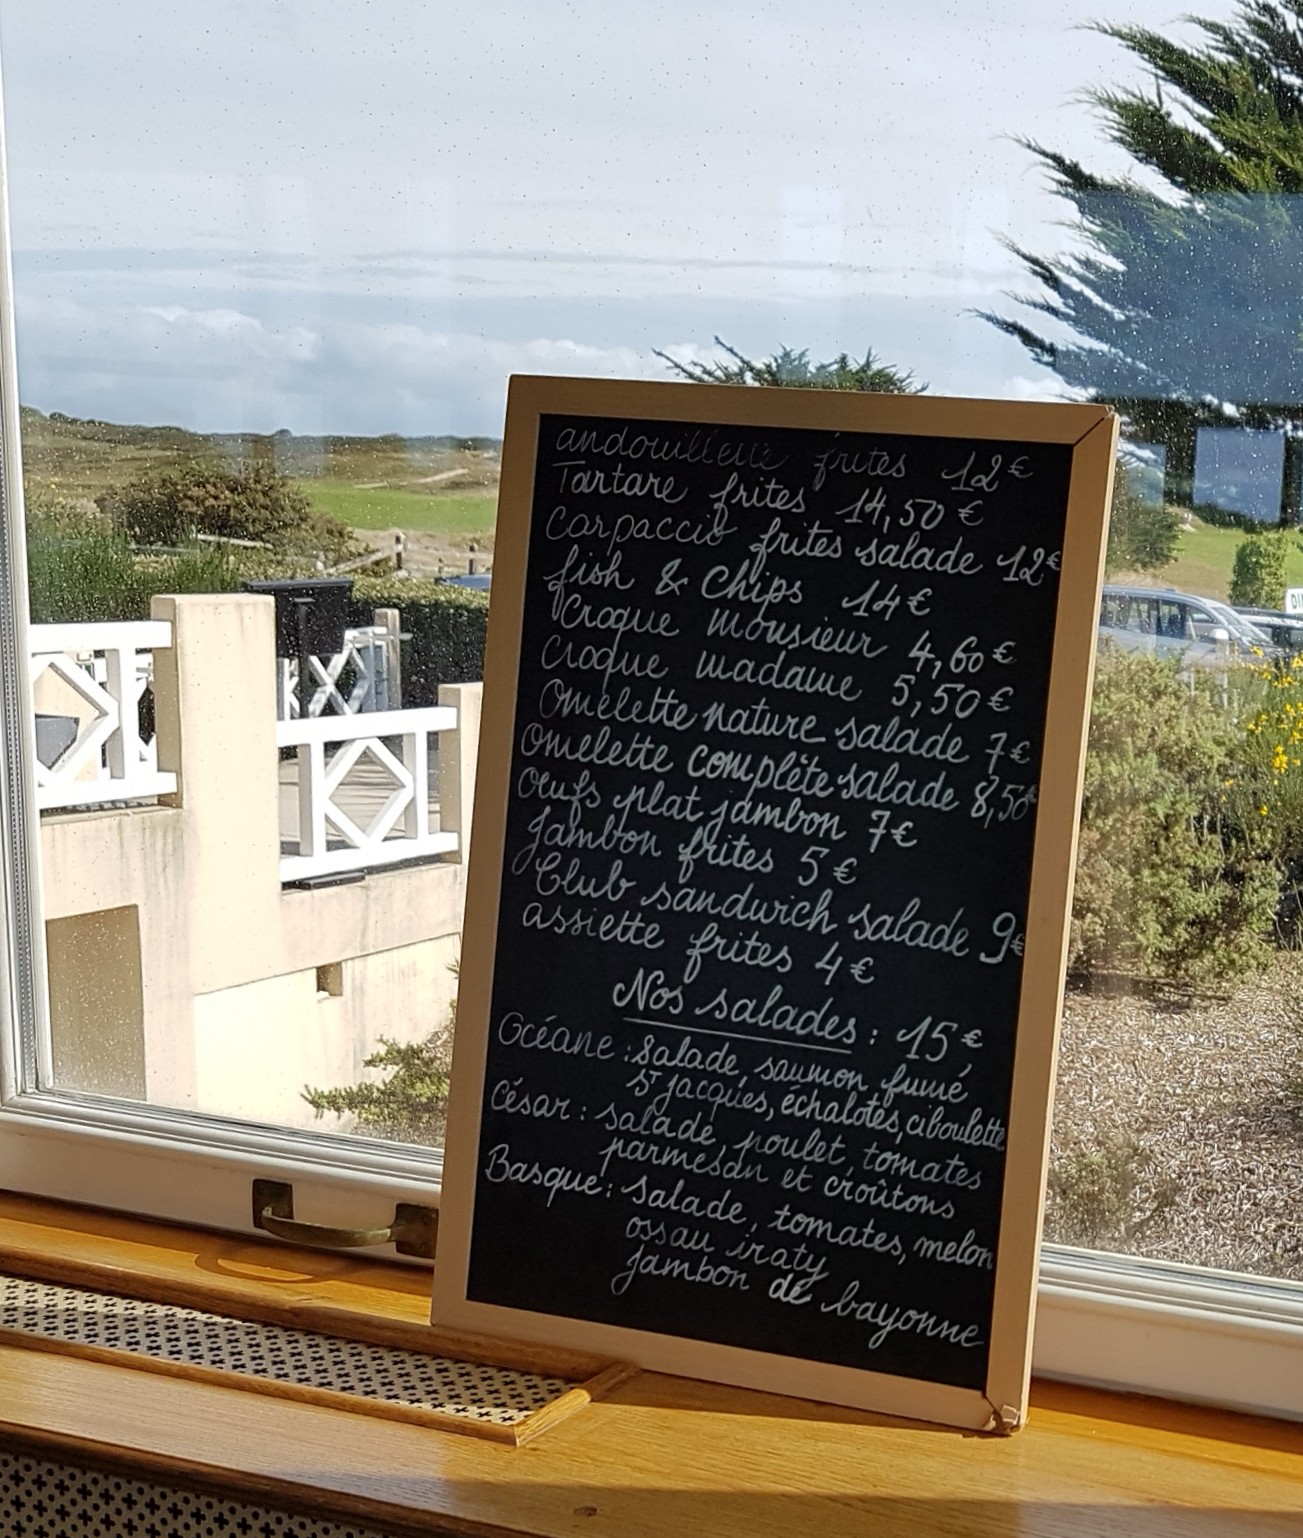 andouillette frites 12€
Tartare frites 14,50€
Carpaccio frites salade 12€
fish & Chips 14€
Croque monsieur 4,60€
Croque madame 5,50€
Omelette nature salade 7€
Omelette complète salade 8,50€
Oeufs plat jambon 7€
Jambon frites 5€
Club sandwich salade 9€
assiette frites 4€
Nos salades : 15€
Océane : salade, saumon fumé,
St jacques, échalotes, ciboulette
César : salade, poulet, tomates
parmesan et croûtons
Basque : salade, tomates, melon
ossau iraty
jambon de bayonne